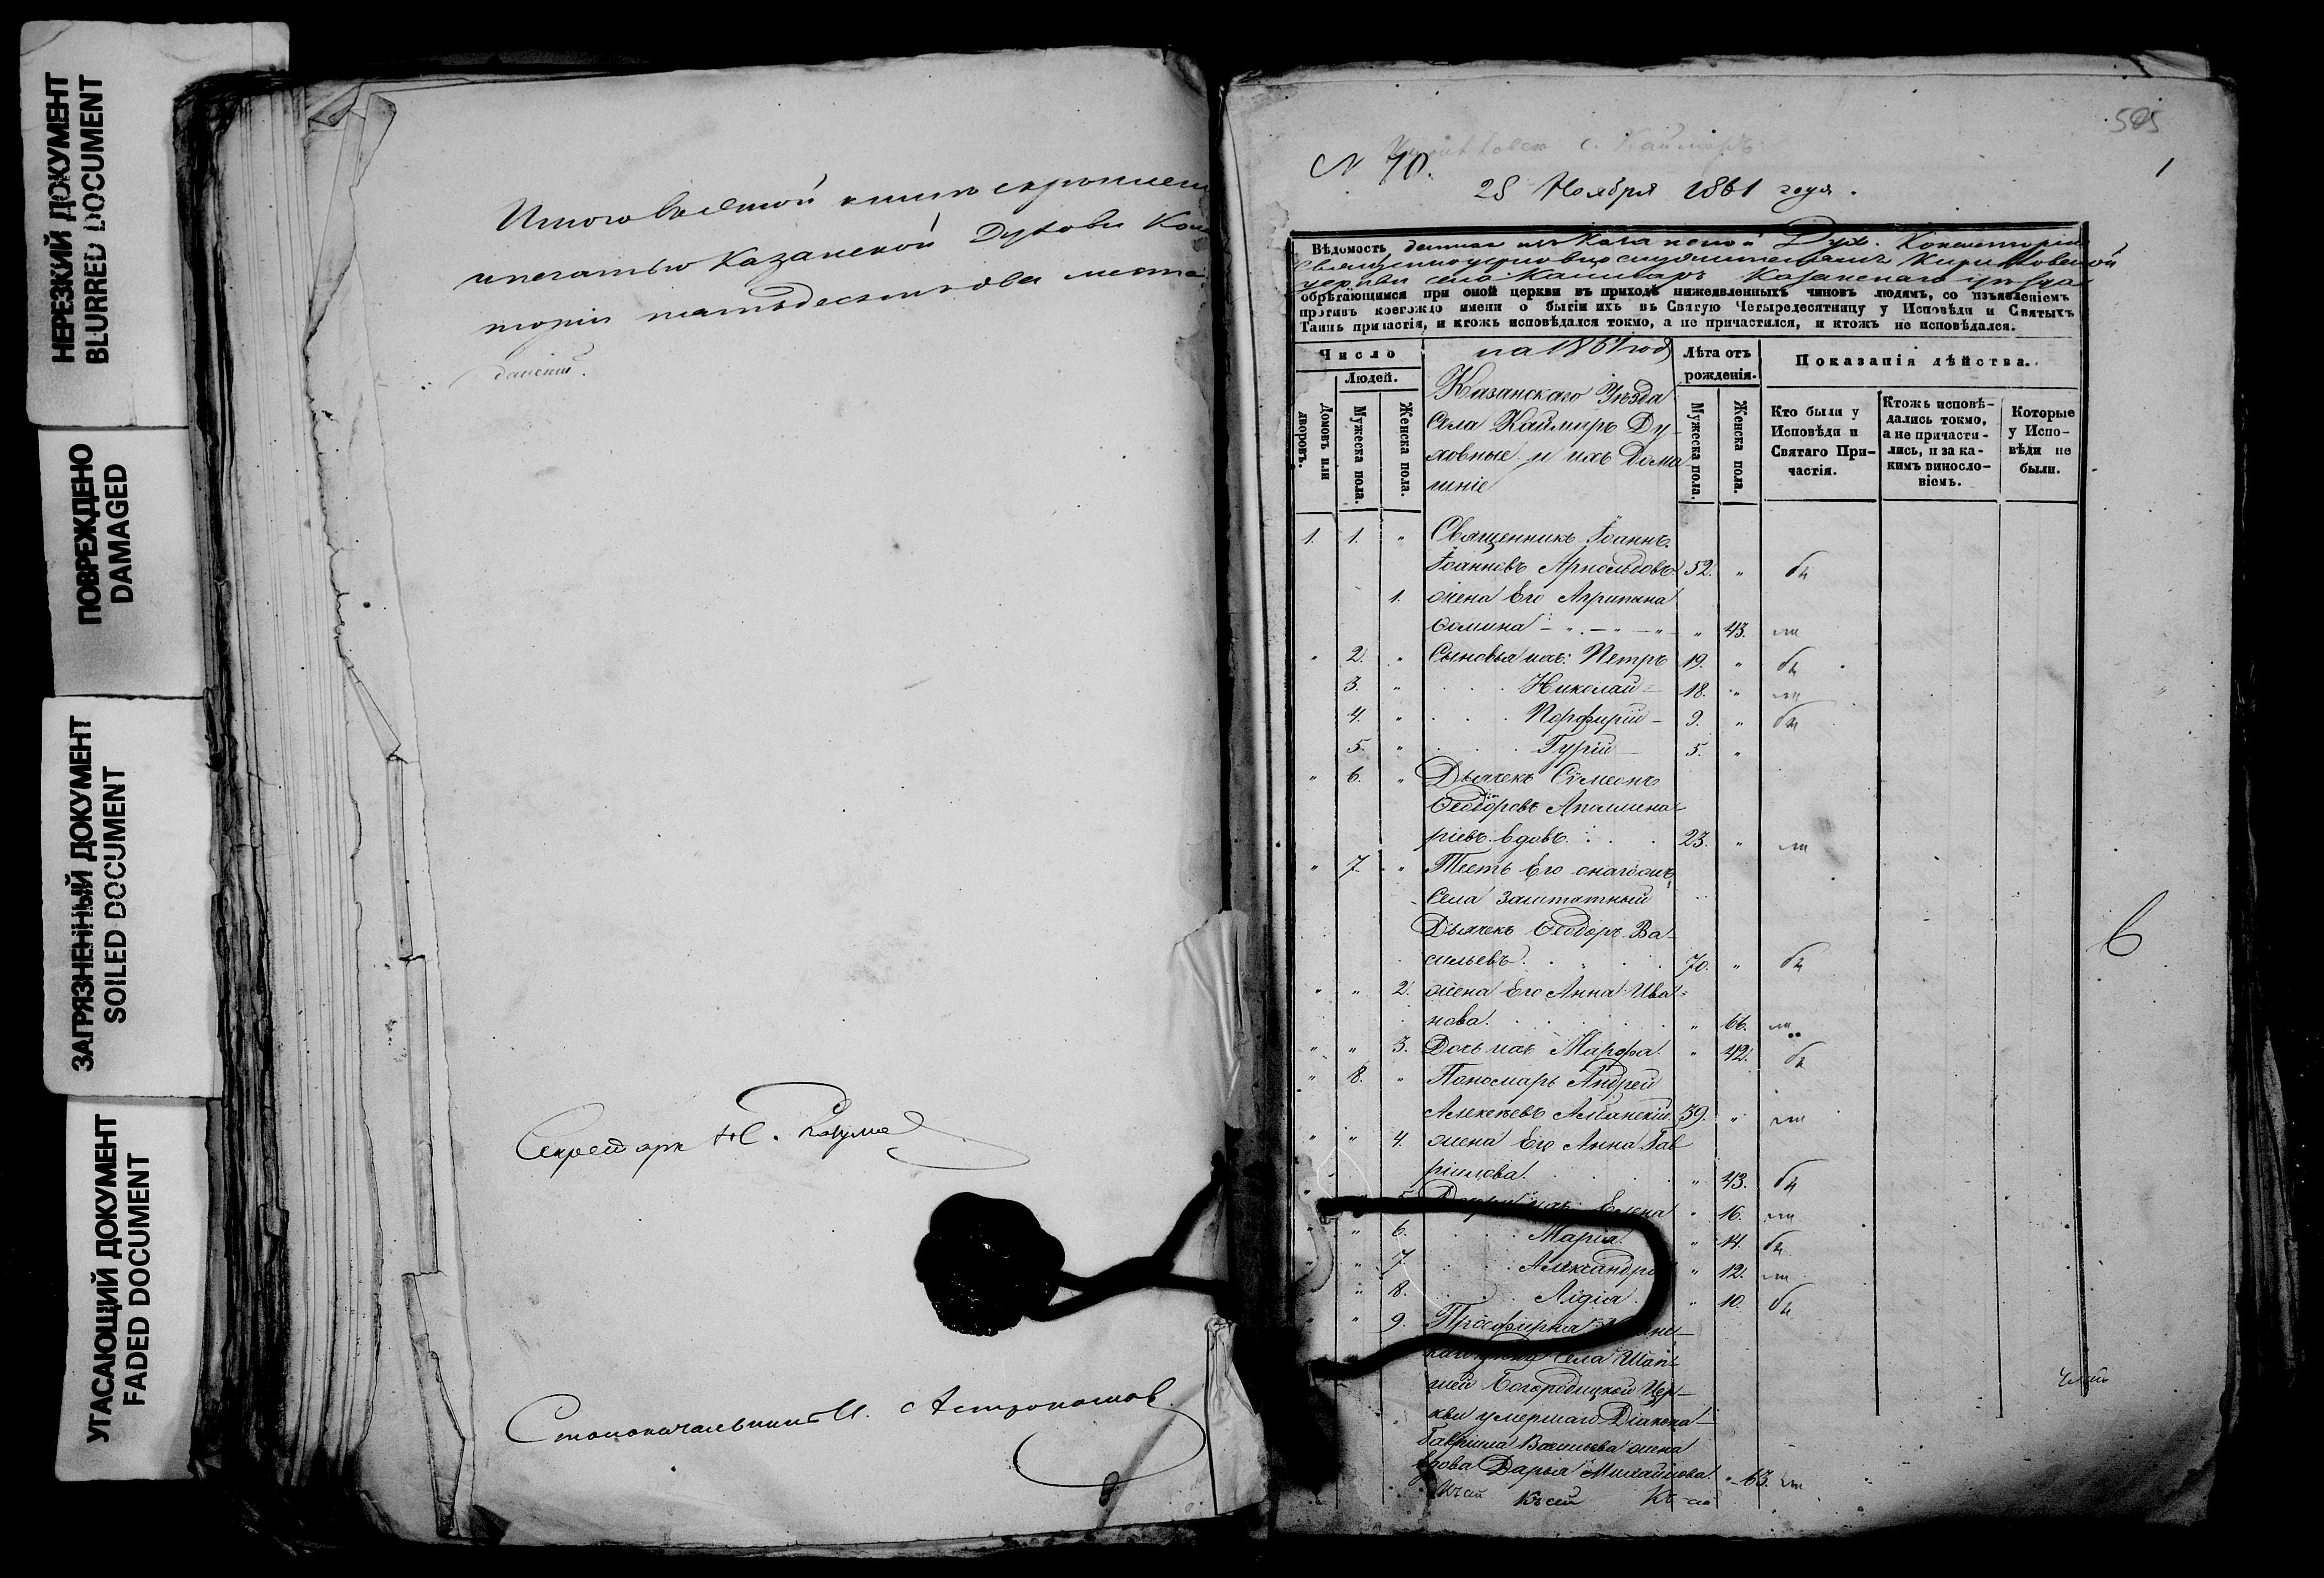 НЕРЕЗКИЙ ДОКУМЕНТ
BLURRED DOCUMENT
ПОВРЕЖДЕНО
DAMAGED
ЗАГРЯЗНЕННЫЙ ДОКУМЕНТ
SOILED DOCUMENT
УГАСАЮЩИЙ ДОКУМЕНТ
FADED DOCUMENT
Казанской Духовн Кон
Секретарь
Столоначальникъ И. Астрономов
505
1
с. Каймаръ
N 70.
28 Ноября 1861 года.
Вѣдомость данная изъ Казанской Дух. Консисторіи
Священноцерковнослужителямъ Кирилловской
церкви села Каймаръ Казанскаго уѣзда
обрѣтающимся при оной церкви въ приходѣ нижеявленныхъ чиновъ людямъ, со изъявленіемъ
противъ коегождо имени о бытіи ихъ въ Святую Четыредесятницу у Исповѣди и Святыхъ
Таинъ причастія, и ктожъ исповѣдался токмо, а не причастился, и ктожъ не исповѣдался.
Число
Людей.
Домовъ или дворовъ.
Мужеска пола.
Женска пола.
на 1861 год
Казанскаго Уѣзда
Села Каймаръ Ду-
ховные и ихъ Дома-
шніе
Лѣта отъ рожденія.
Мужеска пола.
Женска пола.
Показанія дѣйства.
Кто были у Исповѣди и Святаго При-частія.
Ктожъ исповѣ-дались токмо, а не причасти-лись, и за ка-кимъ винословіемъ.
Которые у Испо-вѣди не были.
1. 1. " Священникъ Іоаннъ
Іоанновъ Арнольдовъ 52. " бы
1. жена Его Агрипина
" 43. ли
" 2. " Сыновья ихъ: Петръ 19. " бы
3. " Николай 18. " ли
4. " Порфирій 9. " бы
5. " Гурій 5. "
" 6. " Дьячекъ Сѵмеонъ
Ѳеодоровъ Аполлина-
ріевъ вдовъ 23. " ли
" 7. " Тесть Его онагожъ
Села Заштатный
Дьячекъ Ѳеодоръ Ва-
сильевъ 70. " бы
" " 2. жена Его Анна Ива-
нова " 66. ли
" " 3. Дочь ихъ Марѳа " 42. бы
" 8. " Пономарь Андрей
Алексѣевъ 39. " ли
" " 4. жена Его Анна Гав-
ріилова " 43. бы
5. ихъ: Елена " 16. ли
" 6. Марія " 14. бы
" 7. Александра " 12. ли
" 8. Лидія " 10. бы
" 9. Просфирня
Села Шап-
шей Богородицкой Цер-
кви умершаго Діакона
Гавріила Васильева жена
вдова Дарья Михайлова " 63. ли
6